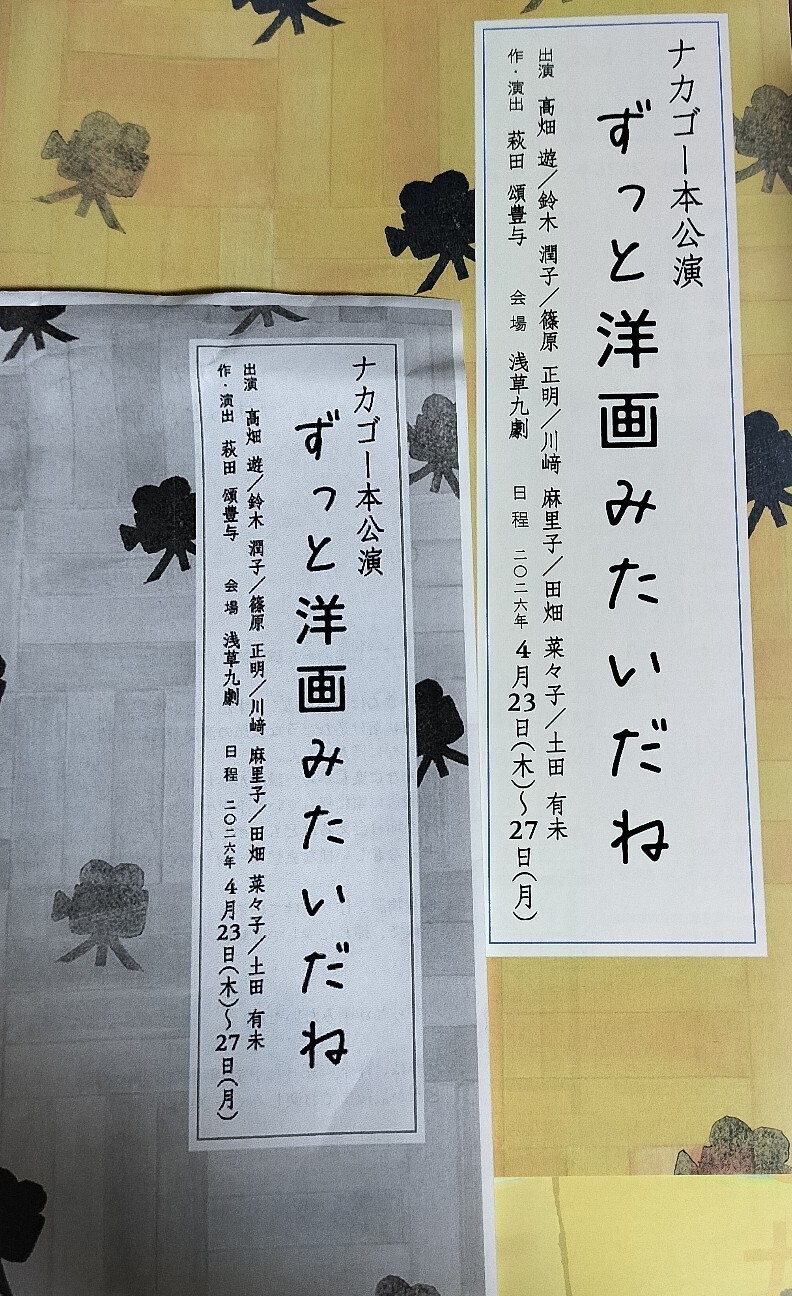 ナカゴー本公演
ずっと洋画みたいだね
出演 高畑 遊／鈴木 潤子／篠原 正明／川﨑 麻里子／田畑 菜々子／土田 有未
作・演出 萩田 頌豊与 会場 浅草九劇 日程 二〇二六年 4月23日(木)～27日(月)
ナカゴー本公演
ずっと洋画みたいだね
出演 高畑 遊／鈴木 潤子／篠原 正明／川﨑 麻里子／田畑 菜々子／土田 有未
作・演出 萩田 頌豊与 会場 浅草九劇 日程 二〇二六年 4月23日(木)～27日(月)